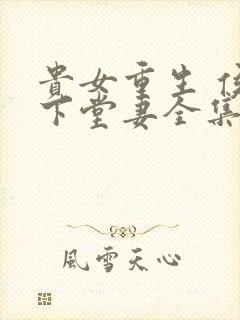 貴女重生
下堂妻全集
風雪天心